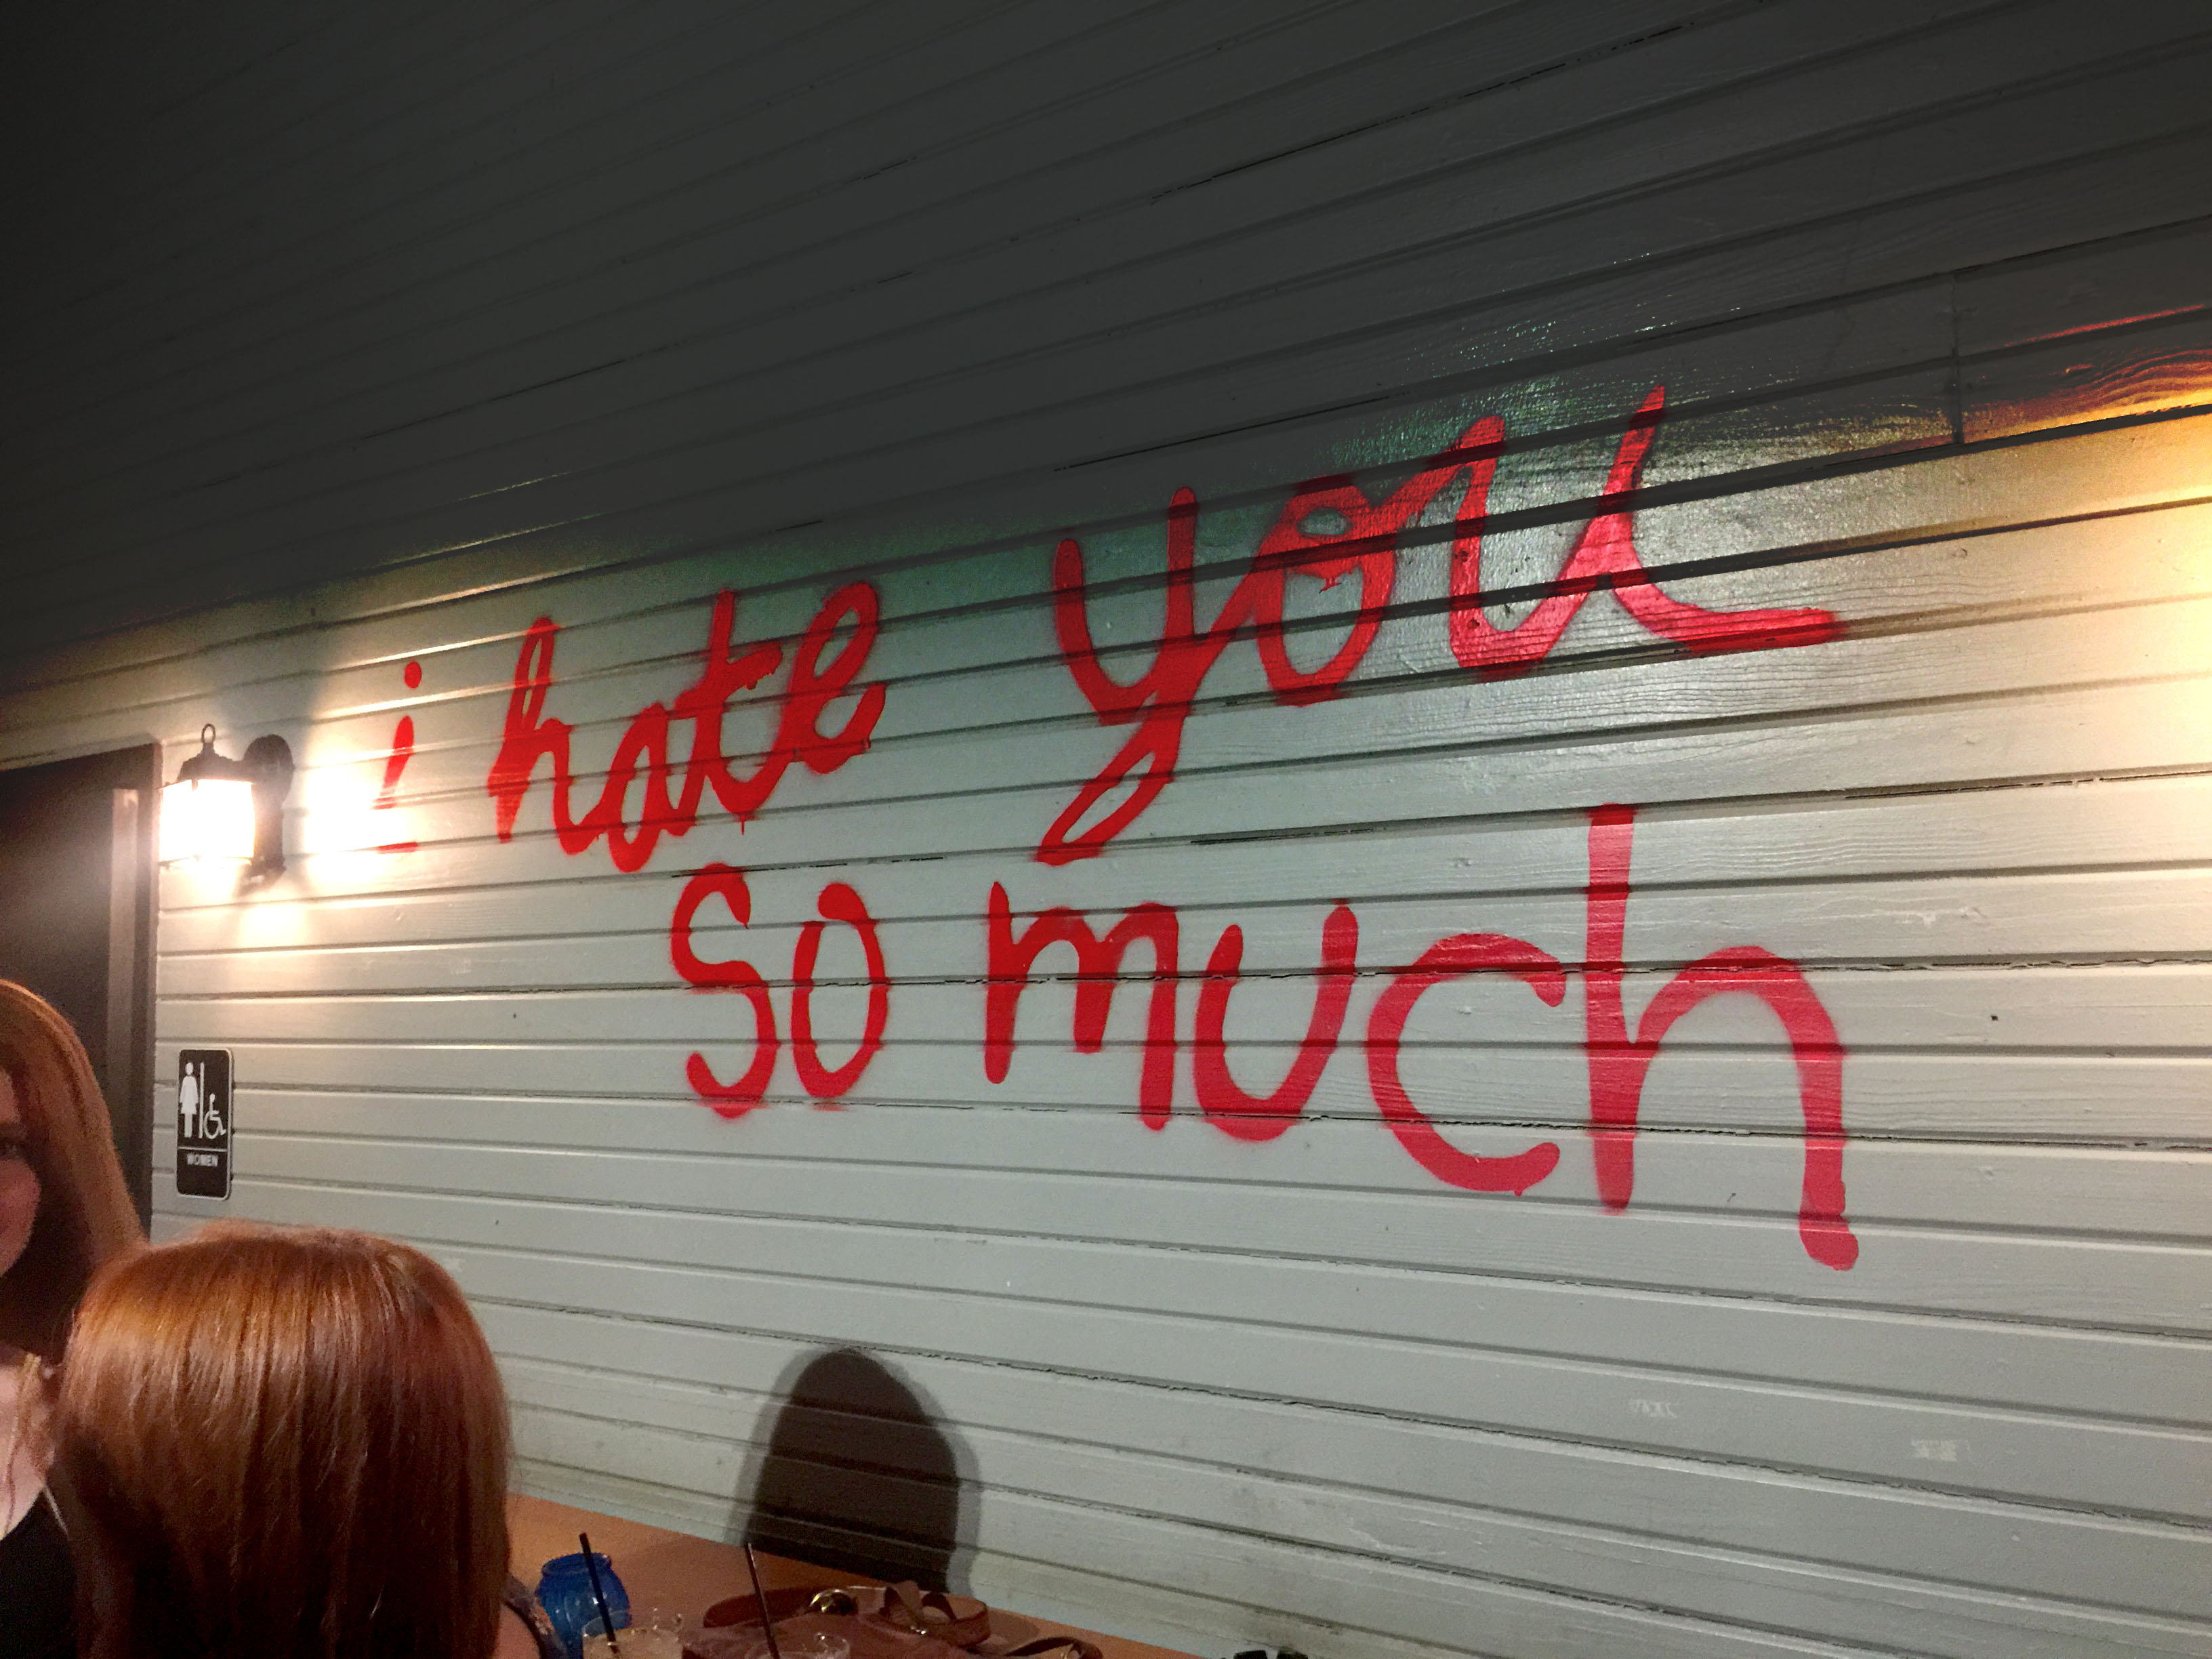 i hate you
so much
WOMEN